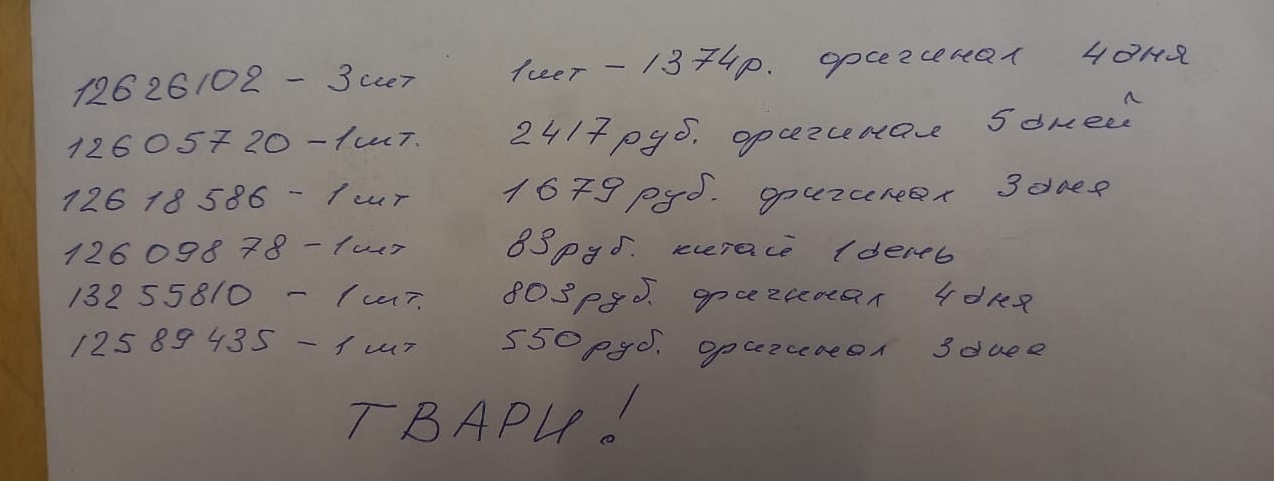 12626102 - 3 шт 1 шт - 1374 р. оригинал 4 дня
12605720 - 1 шт. 2417 руб. оригинал 5 дней
12618586 - 1 шт 1679 руб. оригинал 3 дня
12609878 - 1 шт 83 руб. китай 1 день
13255810 - 1 шт. 803 руб. оригинал 4 дня
12589435 - 1 шт 550 руб. оригинал 3 дня
ТВАРИ!